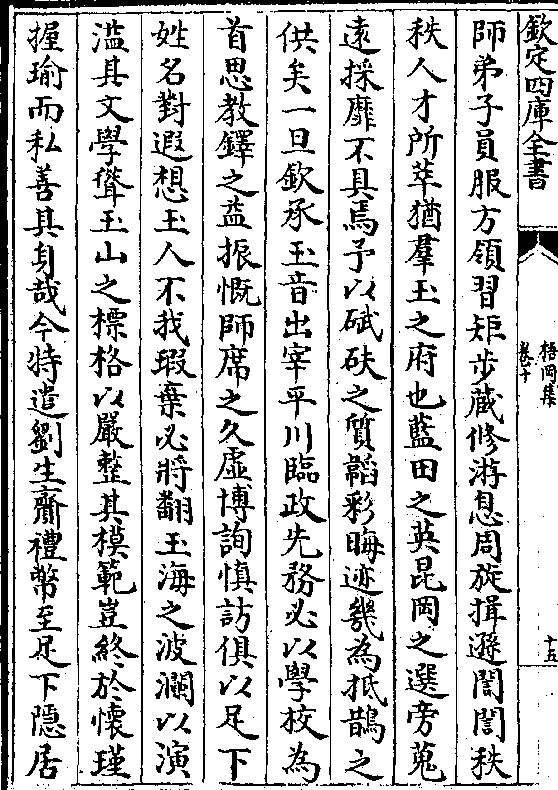 欽定四庫全書
梧岡集
卷十
十五
師弟子員服方領習矩步蔵修游息周旋揖遜誾誾秩
秩人才所萃猶羣玉之府也藍田之英昆岡之選旁蒐
遠採靡不具焉予以碔砆之質韜彩晦迹幾為抵鵲之
供矣一旦欽承玉音出宰平川臨政先務必以學校為
首思教鐸之益振慨師席之久虛博詢慎訪俱以足下
姓名對遐想玉人不我瑕棄必將翻玉海之波瀾以演
𣿬其文學聳玉山之標格以嚴整其模範豈終於懷瑾
握瑜而私善其身哉今特遣劉生齎禮幣至足下隱居